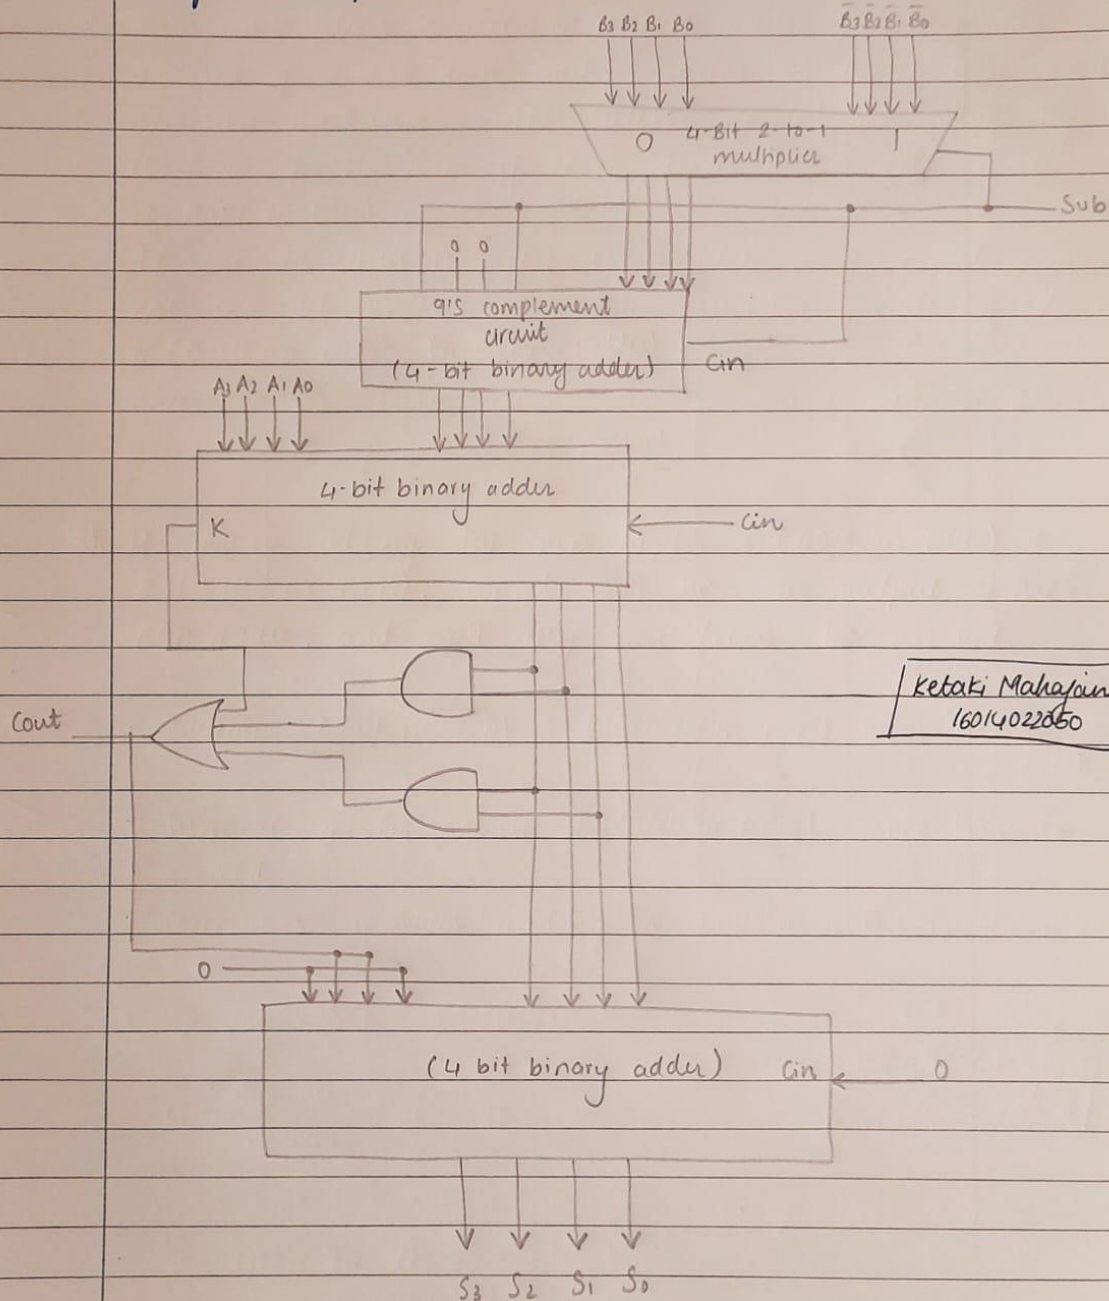 B3 B2 B1 B0
B̅3 B̅2 B̅1 B̅0
0 4-Bit 2-to-1 1
multiplier
Sub
0 0
9's complement
circuit
(4-bit binary adder)
Cin
A3 A2 A1 A0
4-bit binary adder
K
Cin
Ketaki Mahajan
Cout
0
(4 bit binary adder) Cin 0
S3 S2 S1 S0